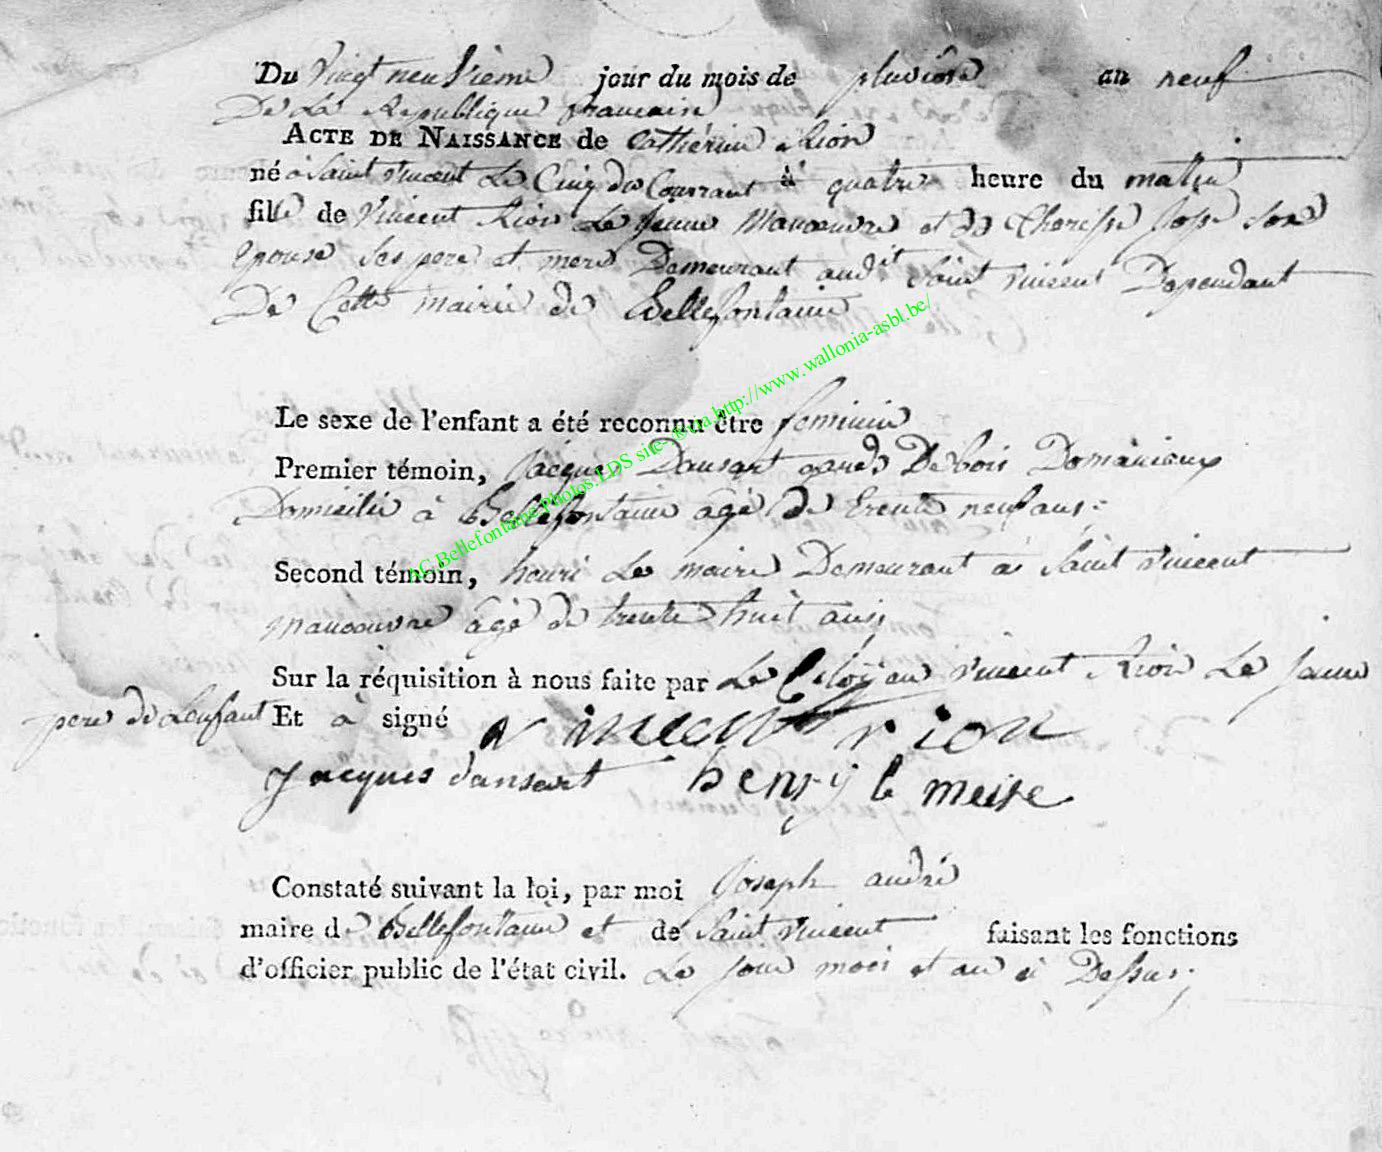 Du Vingt neuvième jour du mois de pluviôse an neuf
De La Republique francaise
ACTE DE NAISSANCE de Catherine Rion
né à Saint Vincent Le Cinq du Courrant à quatre heure du matin
fille de Vincent Rion Le jeune Manoeuvre et de Theresse Joss son
Epouse ses pere et mere Demeurant audit Saint Vincent Dependant
De Cette mairie de Bellefontaine
Le sexe de l'enfant a été reconnu être feminin
Premier témoin, Jacque Dansart garde De bois Domaniaux
Domicilié à Bellefontaine agé de trente neuf ans:
Second témoin, henri Le maire Demeurant à Saint Vincent
manoeuvre âgé de trente huit ans;
Sur la réquisition à nous faite par Le Citoÿen Vincent Rion Le jeune
pere de Lenfant Et à signé vincent rion
Jacques dansart henry le meire
Constaté suivant la loi, par moi Joseph andré
maire de Bellefontaine et de Saint Vincent faisant les fonctions
d'officier public de l'état civil. Le jour mois et an ci Dessus;
AC.Bellefontaine.Photos.EDS site- via http://www.wallonia-asbl.be/